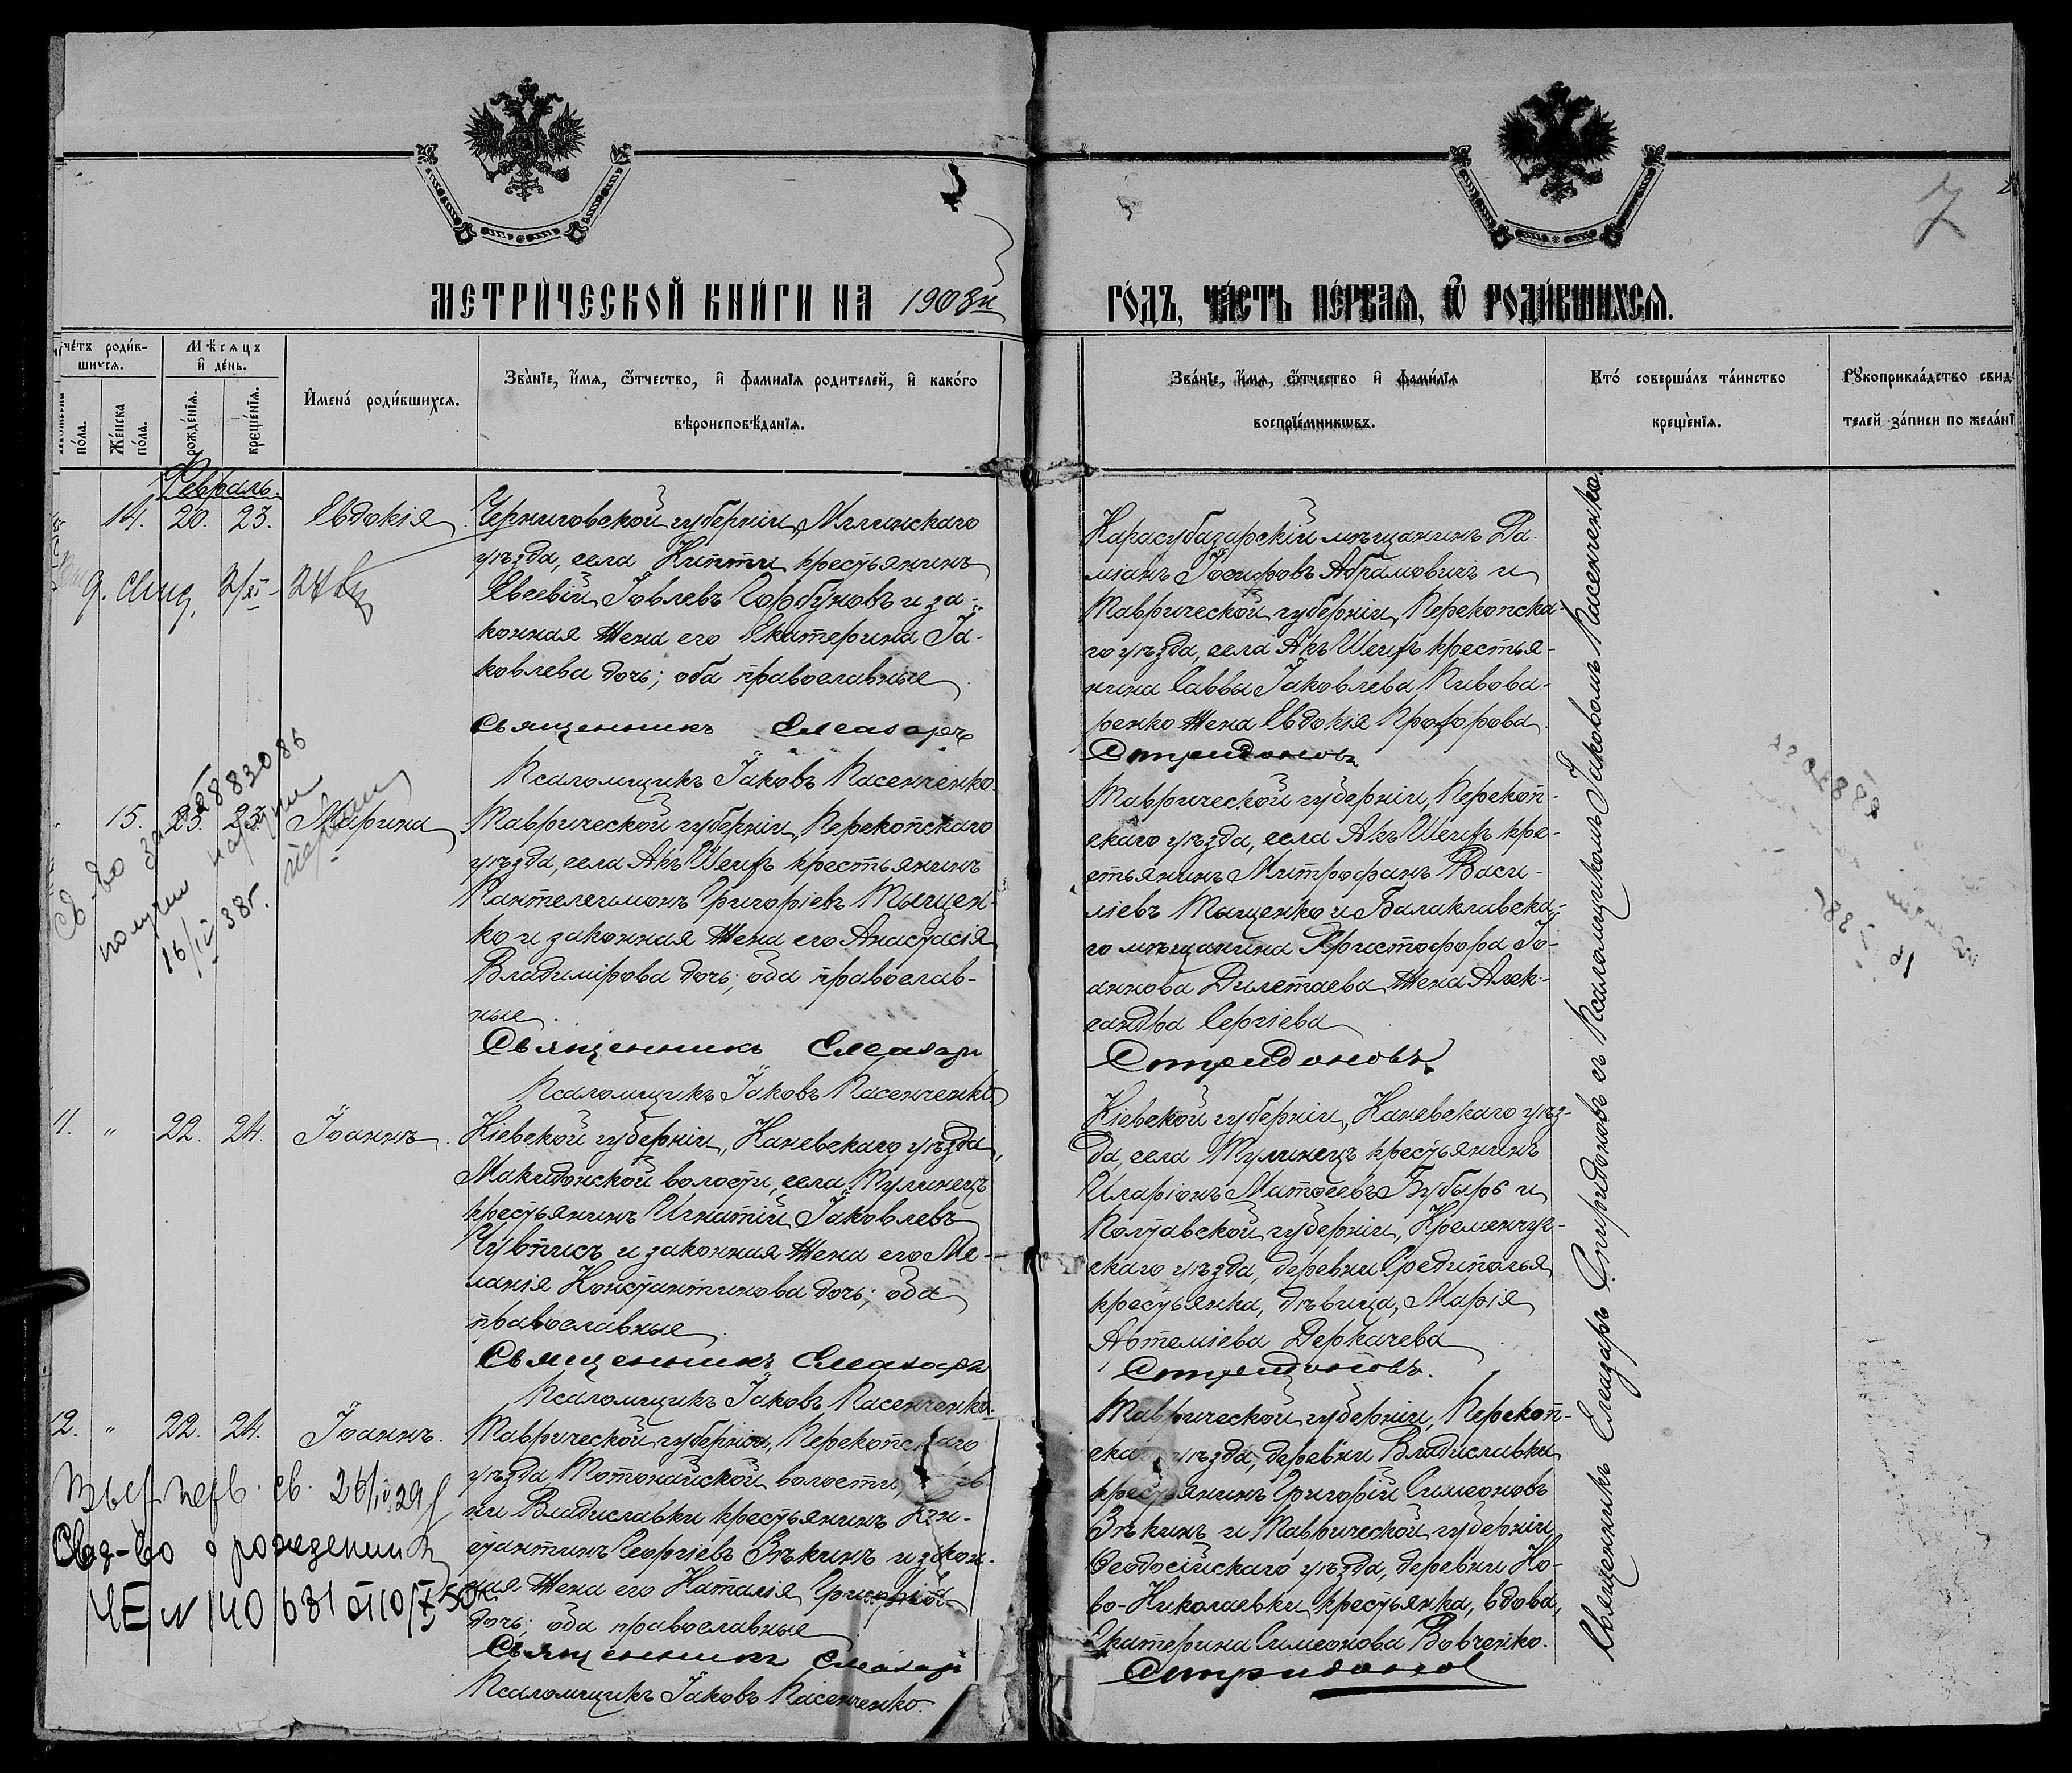 7
МЕТРИ́ЧЕСКОЙ КНИ́ГИ НА 1908й
ГО́ДЪ, ЧА́СТЬ ПЕ́РВАЯ, Ѿ РОДИ́ВШИХСЯ.
Сче́тъ роди́в-
шихся.
Мѣ́сяцъ
и҆ де́нь.
И҆мена́ роди́вшихся.
Зва́нїе, и҆́мя, ѻ҆́тчество, и҆ фами́лїя роди́телей, и҆ како́го
вѣроисповѣ́данїя.
Же́нска
по́ла.
рожде́нїя.
креще́нїя.
Зва́нїе, и҆́мя, ѻ҆́тчество и҆ фами́лїя
воспрїе́мникѡвъ.
Кто́ соверша́лъ та́инство
креще́нїя.
Рꙋкоприкла́дство свид
телей за́писи по жела́нї
Февраль.
14. 20. 23. Евдокія
Черниговской губерніи, Мглинскаго
уѣзда, села Кипти крестьянинъ
Евсевій Іовлевъ Горбуновъ и за-
конная жена его Екатерина Іа-
ковлева дочь; оба православные.
Священникъ Елеазаръ
Псаломщикъ Іаковъ Пасенченко.
Карасубазарскій мѣщанинъ Да-
міанъ Іосифовъ Абрамовичъ и
Таврической губерніи, Перекопска-
го уѣзда, села Акъ Шеихъ крестья-
нина Саввы Іаковлева Пивова-
ренко жена Евдокія Прохорова.
Спиридоновъ
15. 23. 23. Марина
Таврической губерніи, Перекопскаго
уѣзда, села Акъ Шеихъ крестьянинъ
Пантелеимонъ Григоріевъ Тыщен-
ко и законная жена его Анастасія
Владимірова дочь; оба православ-
ные.
Священникъ Елеазаръ
Псаломщикъ Іаковъ Пасенченко
Таврической губерніи, Перекоп-
скаго уѣзда, села Акъ Шеихъ кре-
стьянинъ Митрофанъ Васи-
ліевъ Тыщенко и Балаклавска-
го мѣщанина Христофора Іо-
аннова Дилетаева жена Алек-
сандра Сергіева
Спиридоновъ
16/IV 38г.
11. " 22. 24. Іоаннъ.
Кіевской губерніи, Каневскаго уѣзда,
Макидонской волости, села Тулинецъ
крестьянинъ Игнатій Іаковлевъ
и законная жена его Ме-
ланія Константинова дочь; оба
православные.
Священникъ Елеазаръ
Псаломщикъ Іаковъ Пасенченко.
Кіевской губерніи, Каневскаго уѣз-
да, села Тулинецъ крестьянинъ
Иларіонъ Матѳеевъ Бубырь и
Полтавской губерніи, Кременчуг-
скаго уѣзда, деревни Средиполья
крестьянка, дѣвица, Марія
Артеміева Деркачева
Спиридоновъ.
12. " 22. 24. Іоаннъ.
Таврической губерніи, Перекопскаго
уѣзда Тотонайской волости,
ни Владиславки крестьянинъ Кон-
стантинъ Георгіевъ Зѣкинъ и закон-
ная жена его Наталія Григоріева
дочь; оба православные
Священникъ Елеазаръ
Псаломщикъ Іаковъ Пасенченко.
Таврической губерніи, Перекоп-
скаго уѣзда, деревни Владиславки
крестьянинъ Григорій Симеоновъ
Зѣкинъ и Таврической губерніи
Ѳеодосійскаго уѣзда, деревни Но-
во-Николаевки крестьянка, вдова,
Екатерина Симеонова Вовченко.
Спиридоновъ
Священникъ Елеазаръ Спиридоновъ съ Псаломщикомъ Іаковомъ Пасенченко.
св. 26/IV 29
Свид-во о рождении
ЧЕ № 140631 от 10/X 50